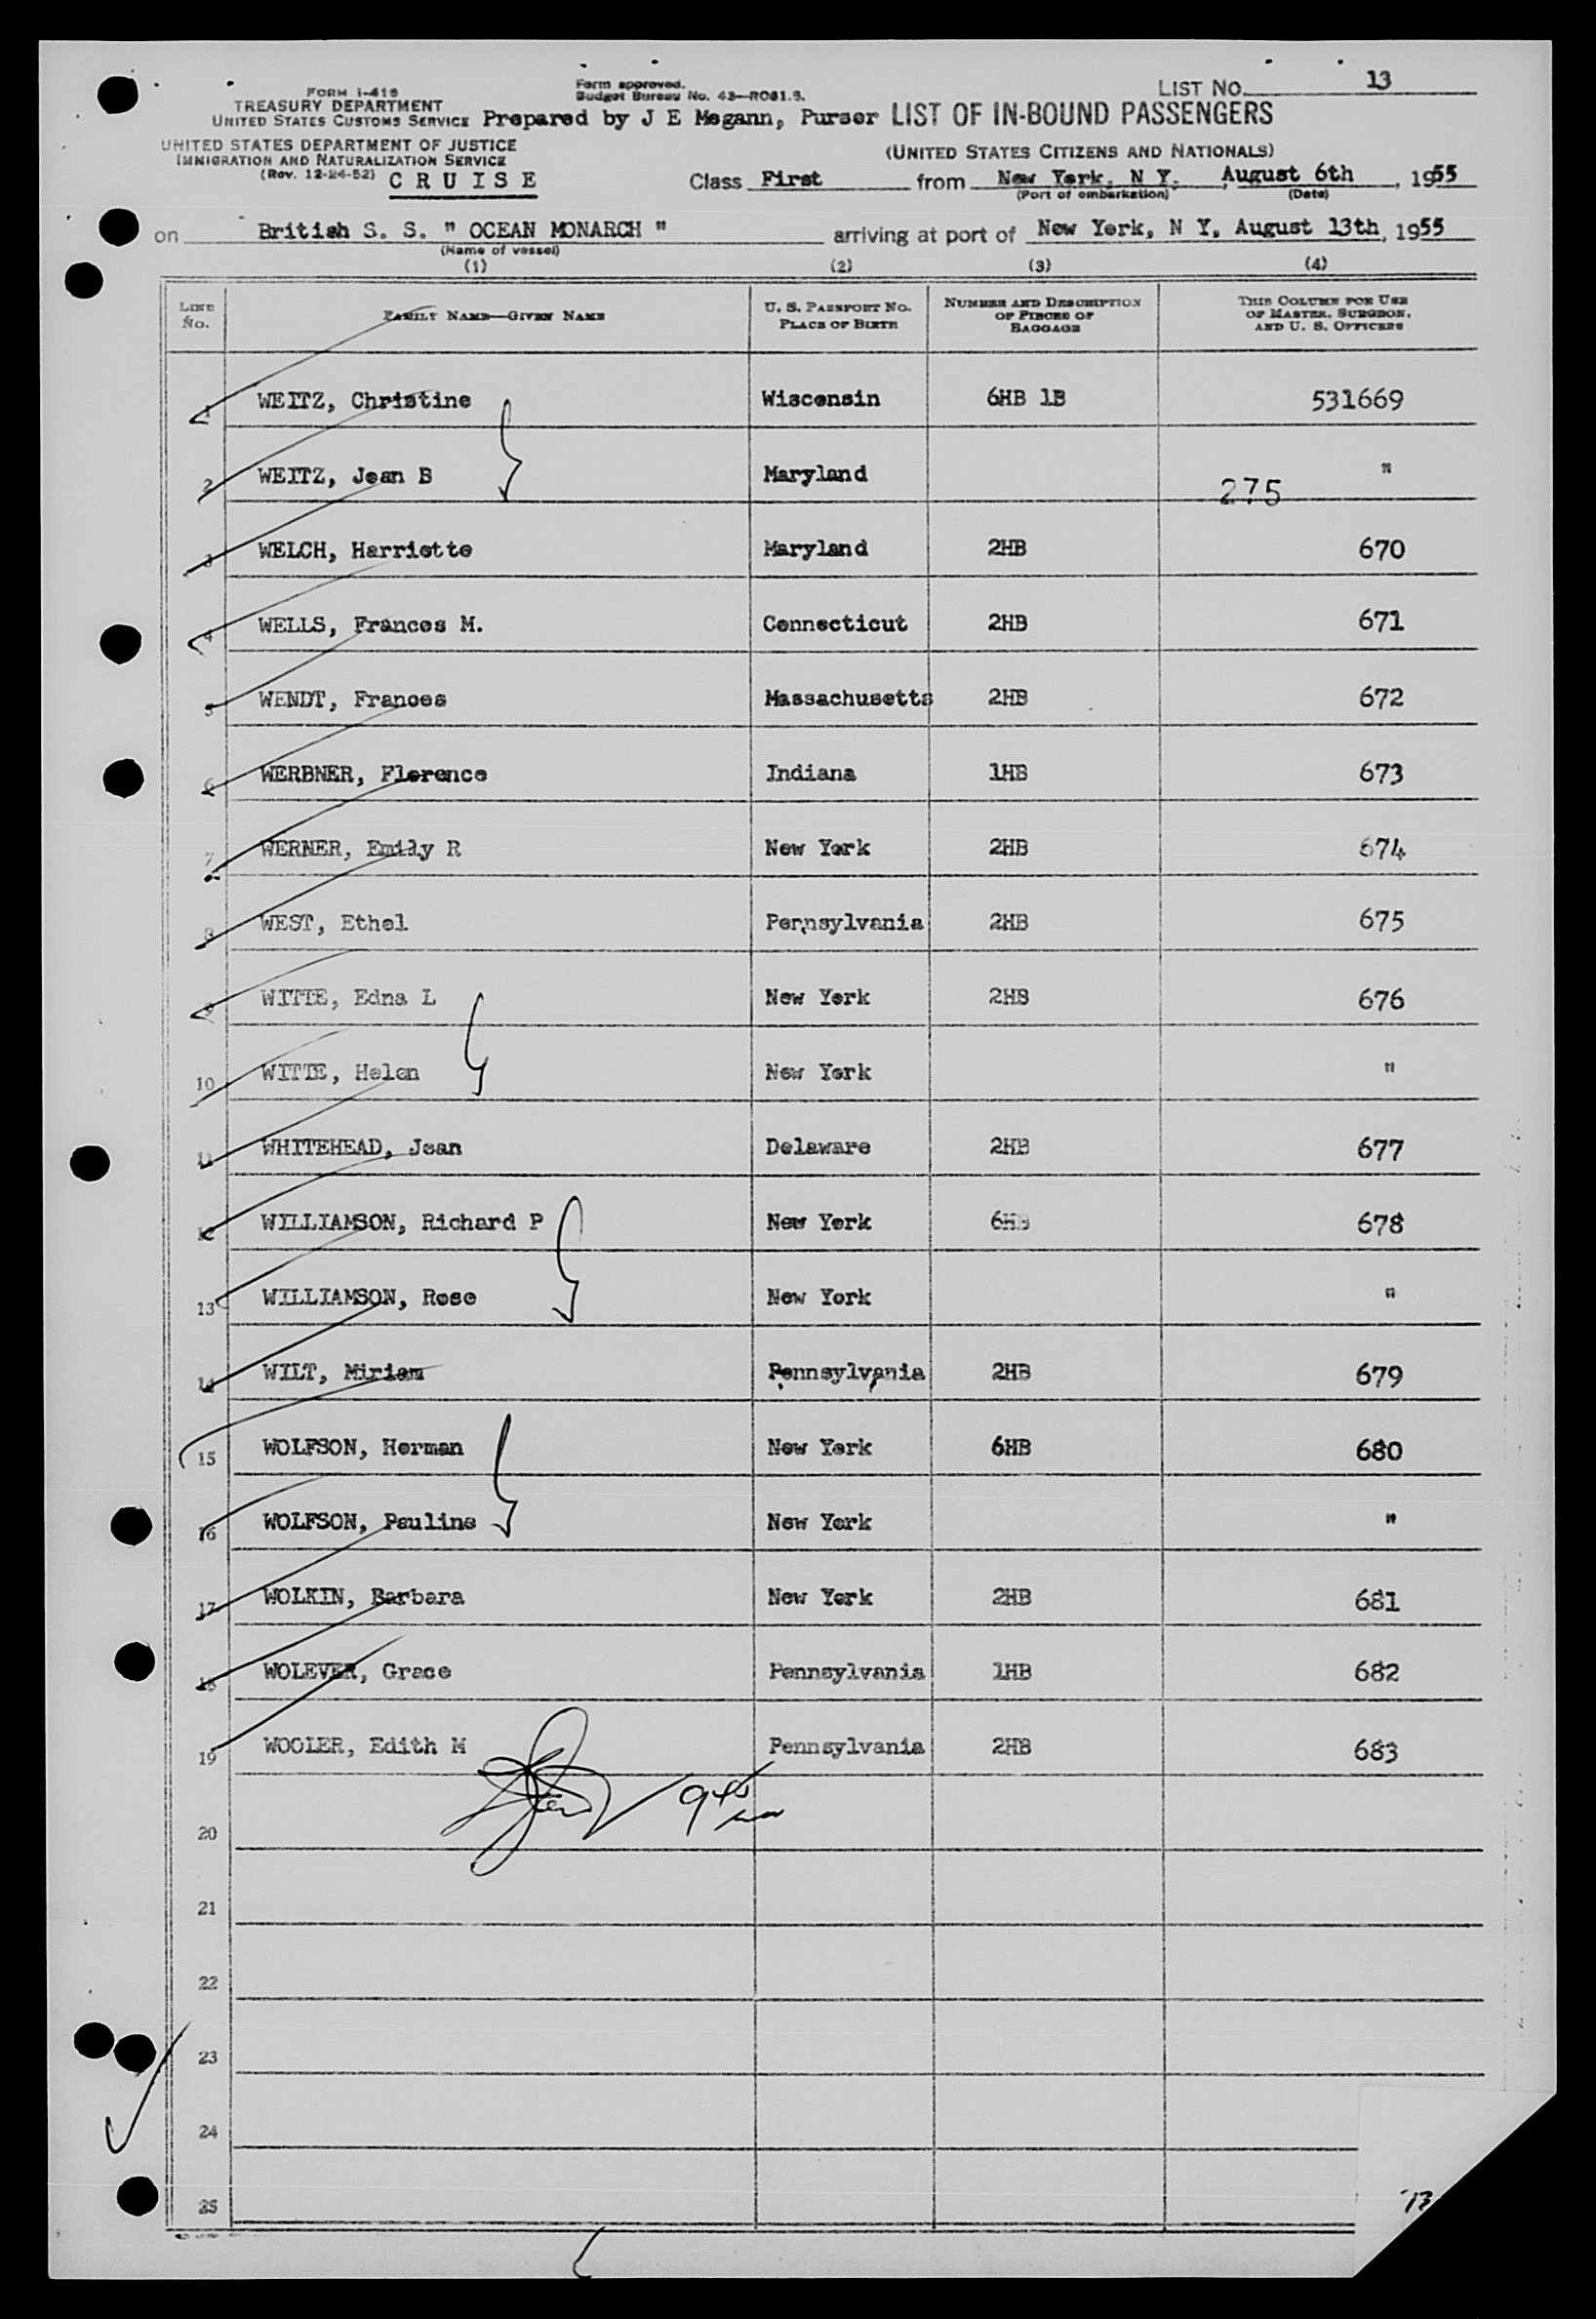 LIST No. 13
FORM I-418
TREASURY DEPARTMENT
UNITED STATES CUSTOMS SERVICE
Form approved.
Budget Bureau No. 43—R081.5.
Prepared by J E Magann, Purser
LIST OF IN-BOUND PASSENGERS
UNITED STATES DEPARTMENT OF JUSTICE
IMMIGRATION AND NATURALIZATION SERVICE
(Rev. 12-24-52)
CRUISE
(UNITED STATES CITIZENS AND NATIONALS)
Class First from New York, N Y, August 6th, 1955
(Port of embarkation) (Date)
on British S. S. " OCEAN MONARCH " arriving at port of New York, N Y, August 13th, 1955
(Name of vessel)
(1) (2) (3) (4)
LINE No. FAMILY NAME—GIVEN NAME U. S. PASSPORT NO. PLACE OF BIRTH NUMBER AND DESCRIPTION OF PIECES OF BAGGAGE THIS COLUMN FOR USE OF MASTER, SURGEON, AND U. S. OFFICERS
1 WEITZ, Christine Wisconsin 6HB 1B 531669
2 WEITZ, Jean B Maryland "
275
3 WELCH, Harriette Maryland 2HB 670
4 WELLS, Frances M. Connecticut 2HB 671
5 WENDT, Frances Massachusetts 2HB 672
6 WERBNER, Florence Indiana 1HB 673
7 WERNER, Emily R New York 2HB 674
8 WEST, Ethel Pennsylvania 2HB 675
9 WITTE, Edna L New York 2HB 676
10 WITTE, Helen New York "
11 WHITEHEAD, Jean Delaware 2HB 677
12 WILLIAMSON, Richard P New York 6HB 678
13 WILLIAMSON, Rose New York "
14 WILT, Miriam Pennsylvania 2HB 679
15 WOLFSON, Herman New York 6HB 680
16 WOLFSON, Pauline New York "
17 WOLKIN, Barbara New York 2HB 681
18 WOLEVER, Grace Pennsylvania 1HB 682
19 WOOLER, Edith M Pennsylvania 2HB 683
20
21
22
23
24
25
13